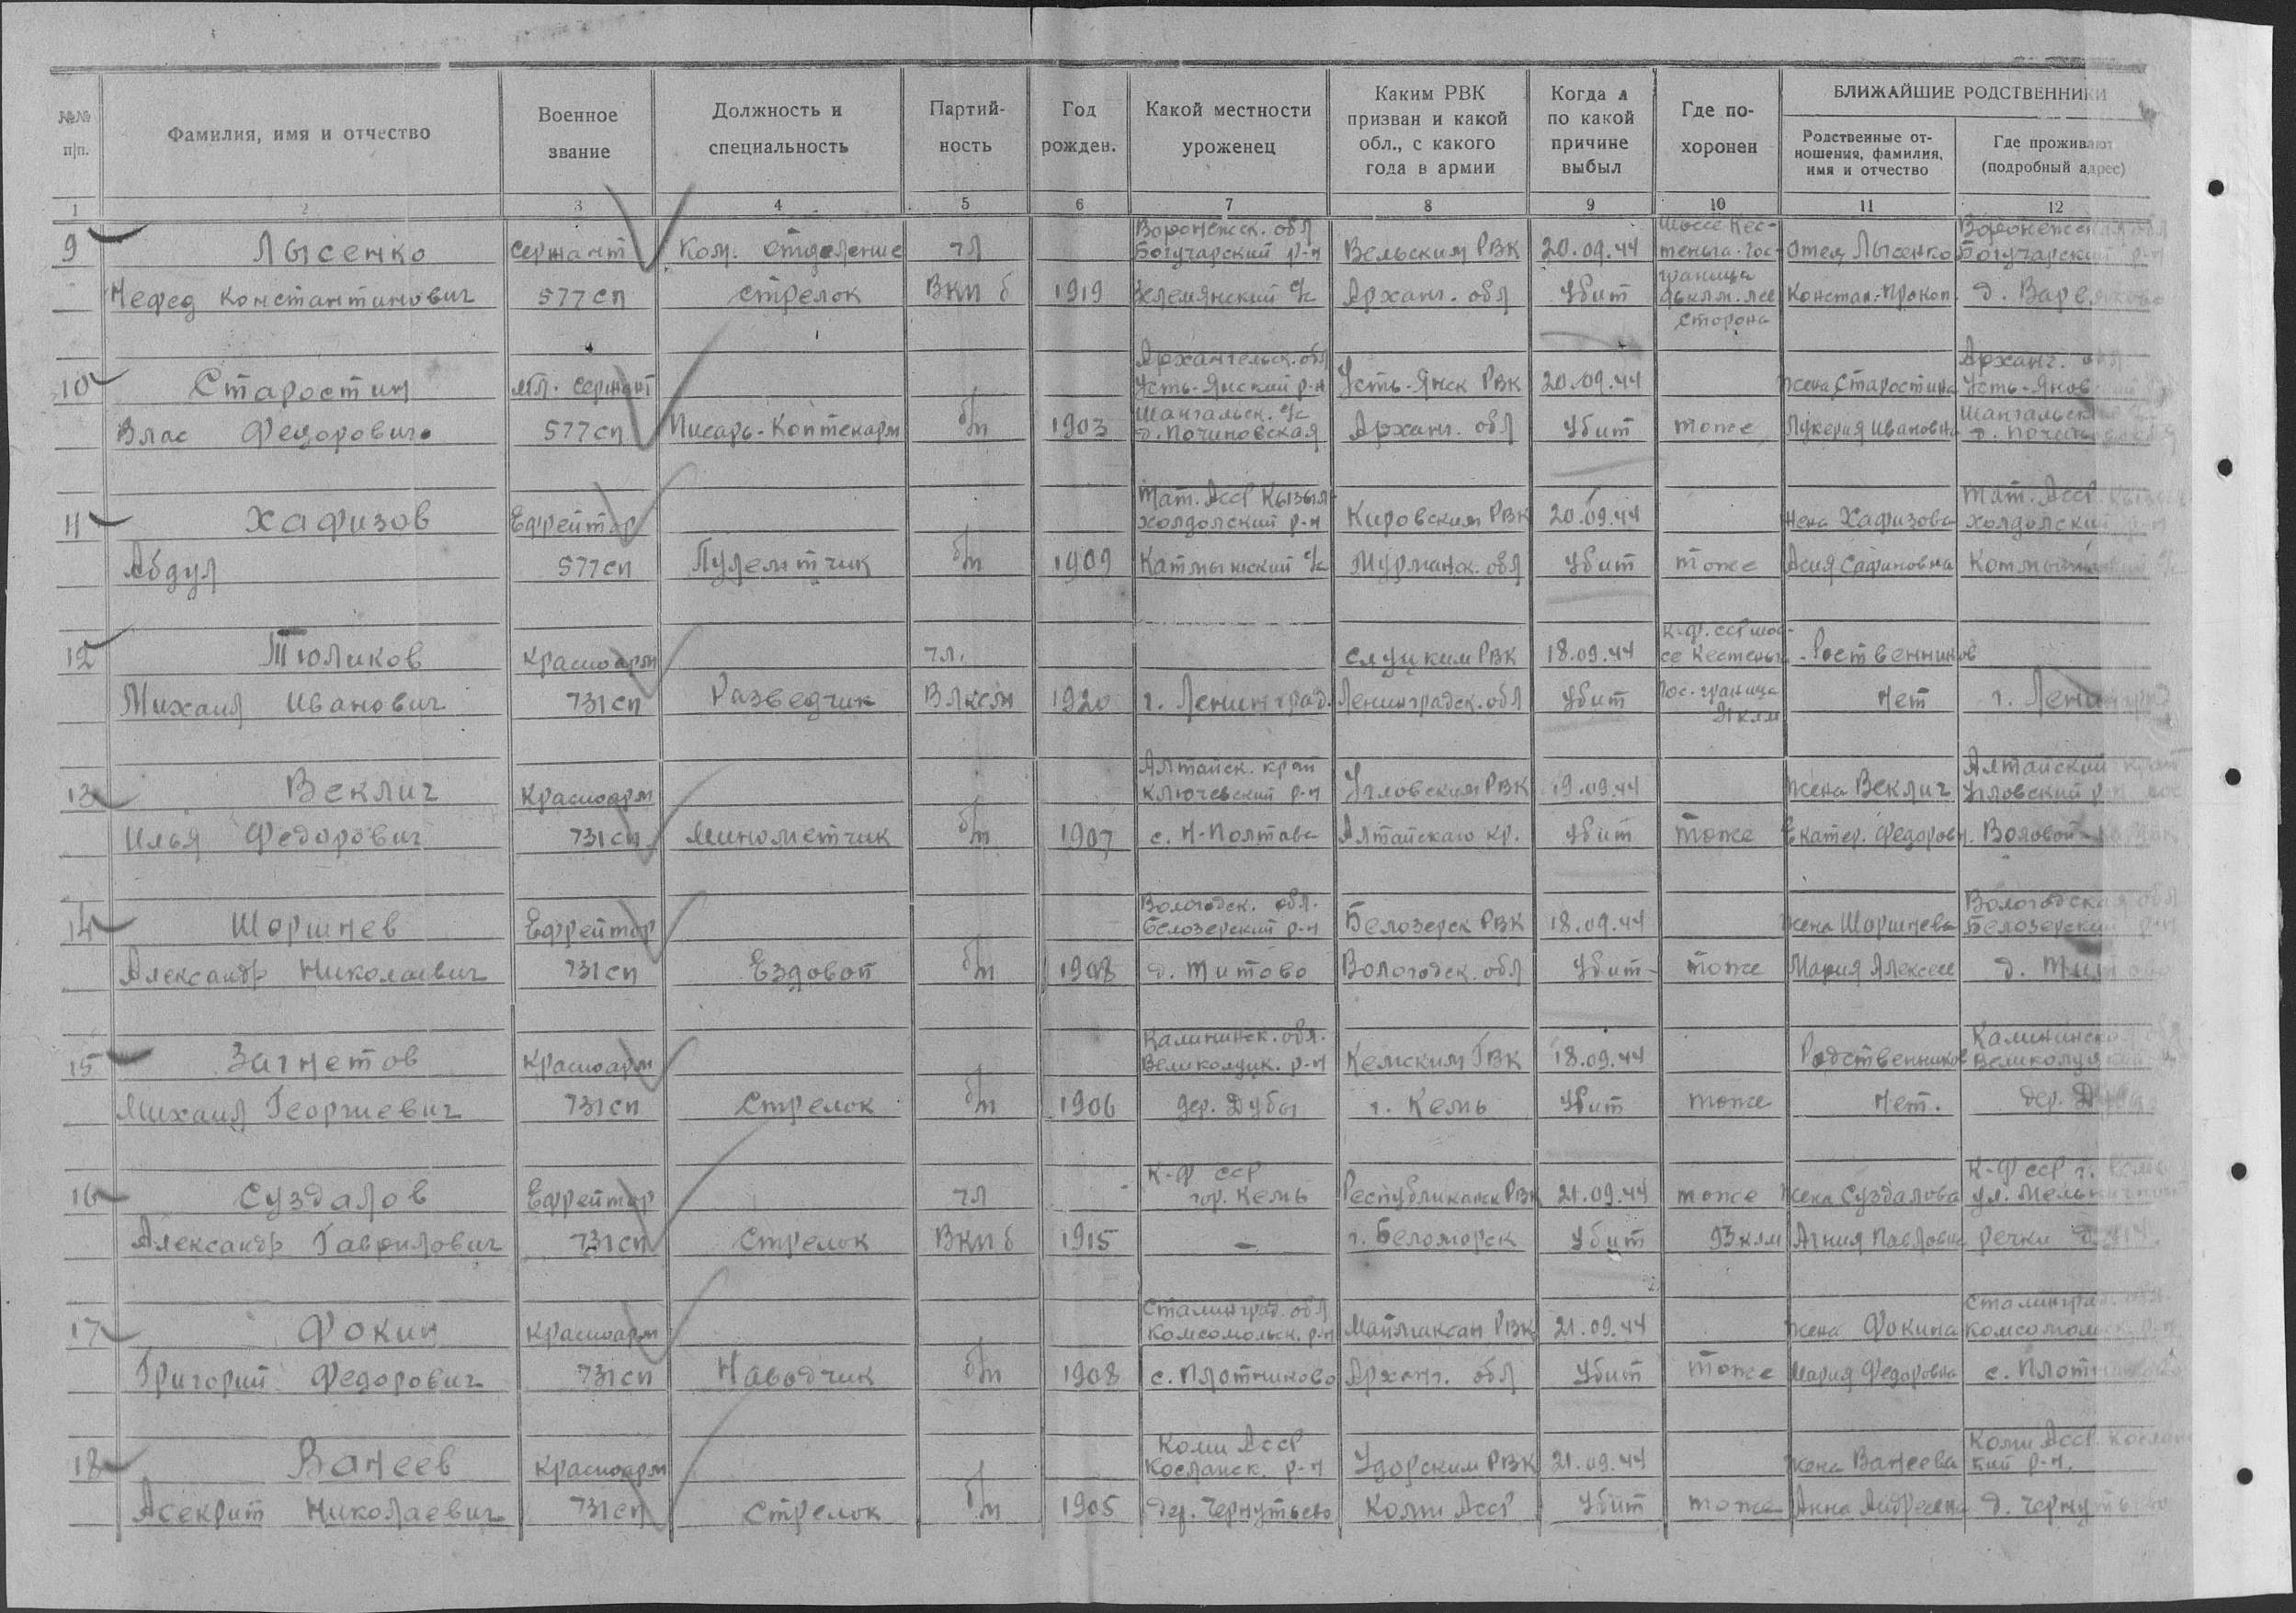 №№ п|п.
Фамилия, имя и отчество
Военное звание
Должность и специальность
Партий- ность
Год рожден.
Какой местности уроженец
Каким РВК призван и какой обл., с какого года в армии
Когда и по какой причине выбыл
Где по- хоронен
БЛИЖАЙШИЕ РОДСТВЕННИКИ
Родственные от- ношения, фамилия, имя и отчество
Где проживают (подробный адрес)
1 2 3 4 5 6 7 8 9 10 11 12
Воронежск. обл Шоссе Кес- Воронежская обл
9 Лысенко сержант Ком. отделение чл Богучарский р-н Вельским РВК 20.09.44 теньга-Гос- отец Лысенко Богучарский р-н
граница
Нефед Константинович 577 сп стрелок ВКП б 1919 с/с Арханг. обл Убит Констан. Прокоп. д.
сторона
Архангельск. обл Арханг. обл
10 Старостин мл. сержант Усть-Янский р-н Усть-Янск РВК 20.09.44 жена Старостина Усть-Янов
Шангальск. с/с Шангальск
Влас Федорович 577 сп Писарь-Коптенарм б/п 1903 д. Починовская Арханг. обл Убит тоже Лукерия Ивановна д.
Тат. Асср Кызыл- Тат. Асср
11 Хафизов Ефрейтор холдолский р-н Кировским РВК 20.09.44 жена Хафизова холдолский р-н
Абдул 577 сп Пулемтчик б/п 1909 Катмышский с/с Мурманск. обл Убит тоже Асия Сафиновна
К-Ф. ССР шос-
12 Тюликов Красноарм чл. слуцким РВК 18.09.44 се Кестеньга- Роственников
Гос. граница
Михаил Иванович 731 сп Разведчик Влксм 1920 г. Ленинград. Ленинградск. обл Убит нет г. Ленинград
клм
Алтайск. край Алтайский край
13 Веклич Красноарм Ключевский р-н Угловским РВК 19.09.44 жена Веклич Угловский р-н
Илья Федорович 731 сп Минометчик б/п 1907 с. Н-Полтава Алтайскаго кр. Убит тоже Екатер. Федоровн. Воловой
Вологодск. обл. Вологодская обл
14 Шоршнев Ефрейтор Белозерский р-н Белозерск РВК 18.09.44 жена Шоршнева Белозерский р-н
Александр Николаевич 731 сп Ездовой б/п 1908 д. Титово Вологодск. обл Убит тоже Мария Алексее д. Титово
Калининск. обл. Калининской обл
15 Загнетов Красноарм Великолук. р-н Кемским ГВК 18.09.44 Родственников
Михаил Георгиевич 731 сп Стрелок б/п 1906 дер. Дубы г. Кемь Убит тоже нет. дер.
К-Ф ССР К-Ф ССР г.
16 Суздалов Ефрейтор чл гор. Кемь Республиканск РВК 21.09.44 тоже жена Суздалова ул.
Александр Гаврилович 731 сп Стрелок ВКП б 1915 — г. Беломорск Убит 93 клм Агния Павловна речки
Сталинград. обл Сталинград. обл.
17 Фокин Красноарм Комсомольск. р-н Маймаксан РВК 21.09.44 жена Фокина Комсомольск. р-н
Григорий Федорович 731 сп Наводчик б/п 1908 с. Плотниково Арханг. обл Убит тоже Мария Федоровна с. Плотниково
Коми Асср Коми Асср
18 Ванеев Красноарм Косланск. р-н Удорским РВК 21.09.44 жена Ванеева кий р-н.
Асекрит Николаевич 731 сп стрелок б/п 1905 дер. Чернутьево Коми Асср Убит тоже Анна Андреевна д. Чернутьево